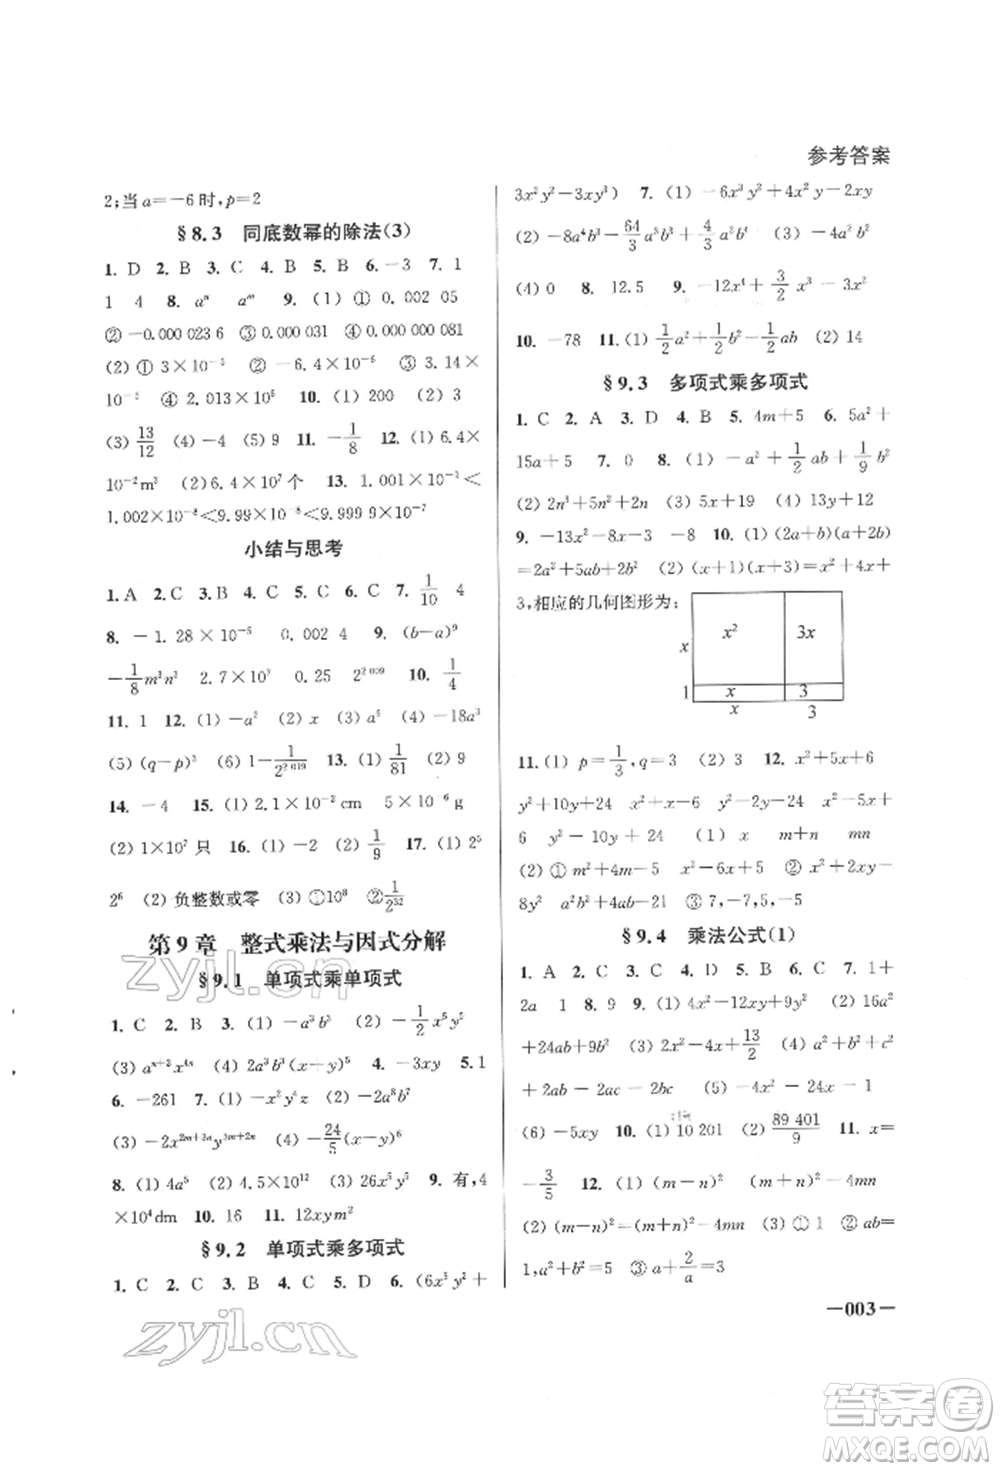 参考答案
2;当a=-6时,p=2
§8.3 同底数幂的除法(3)
1. D 2. B 3. C 4. B 5. B 6. -3 7. 1
1 4 8. aⁿ aᵐ 9. (1) ① 0.002 05
② -0.000 023 6 ③ 0.000 031 ④ 0.000 000 081
(2) ① 3×10⁻⁵ ② -6.4×10⁻⁶ ③
10⁻⁵ ④ 2.013×10⁻⁶ 10. (1) 200 (2) 3
(3) 13/12 (4) -4 (5) 9 11. -1/8 12. (1) 6.4×
10⁻²m² (2) 6.4×10⁷个 13. 1.001×10⁻⁷<
1.002×10⁻⁸<9.99×10⁻⁸<9.999 9×10⁻⁷
小结与思考
1. A 2. C 3. B 4. B 5. C 6. C 7. 1/10 4
8. -1.28×10⁻⁵ 0.002 4 9. (b-a)⁹
-1/8m³n³ 2.7×10⁵ 0.25 2² ⁰⁰⁹ 10. 1/4
11. 1 12. (1) -a² (2) x (3) a⁵ (4) -18a³
(5) (q-p)³ (6) 1-1/2² ⁰¹⁹ 13. (1) 1/81 (2) 9
14. -4 15. (1) 2.1×10⁻²cm 5×10⁻⁶g
(2) 1×10⁷只 16. (1) -2 (2) 1/9 17. (1) 2⁵
2⁶ (2) 负整数或零 (3) ①10⁸ ②1/2³²
第9章 整式乘法与因式分解
§9.1 单项式乘单项式
1. C 2. B 3. (1) -a³b³ (2) -1/2x⁵y²
(3) aⁿ⁺²x⁴ⁿ (4) 2a³b³(x-y)⁵ 4. -3xy 5. 1
6. -261 7. (1) -x²y³z (2) -2a⁸b⁸
(3) -2x²ᵐ⁺³ⁿy³ᵐ⁺²ⁿ (4) -24/5(x-y)⁶
8. (1) 4a⁵ (2) 4.5×10¹² (3) 16x⁵y⁵ 9. 有,4
×10⁴dm 10. 16 11. 12xym²
§9.2 单项式乘多项式
1. C 2. C 3. D 4. B 5. D 6. (6x³y²+
3x²y²-3xy³) 7. (1) -6x³y²+4x²y-2xy
(2) -8a⁴b³-64/3a³b³+2a²b⁴ (3) -4a²b²
(4) 0 8. 12.5 9. -12x⁴+3/2x³-3x²
10. -78 11. (1) 1/2a²+1/2b²-1/2ab (2) 14
§9.3 多项式乘多项式
1. C 2. A 3. D 4. A 5. 4m+5 6. 5a²+
15a+5 7. 0 8. (1) -a²+1/2ab+1/9b²
(2) 2n³+5n²+2n (3) 5x+19 (4) 13y+11
9. -13x²-8x-3 -8 10. (1) (2a+b)(a+2b)
=2a²+5ab+2b² (2) (x+1)(x+3)=x²+4x+
3,相应的几何图形为:
x² 3x
x
1 x 3
x 3
11. (1) p=1/3, q=3 (2) 3 12. x²+5x+6
y²+10y+24 x²+x-6 y²-2y-24 x²-5x+
6 y²-10y+24 (1) x m+n mn
(2) ① m²+4m-5 x²-6x+5 ② x²+6x+
8 a²-6a+8 (3) 7,-7,5,-5
§9.4 乘法公式(1)
1. A 2. C 3. D 4. C 5. C 6. C 7. 1+
2a 1 8. 9 9. (1) 4x²-12xy+9y² (2) 16a²
+24ab+9b² (3) 2x²-4x+13/2 (4) a²+b²+c²
+2ab-2ac-2bc (5) -4x
(6) -5xy 10. (1) 10 201 (2) 89 401/9 11. x=
-3/5 12. (1) (m-n)² (m+n)²-4mn
(2) (m-n)²=(m+n)²-4mn (3) ① 1 ② ab=
1,a²+b²=6 ③ a+2/a=3
—003—
zyjl.cn
zyjl.cn
答案圈
MXQE.COM